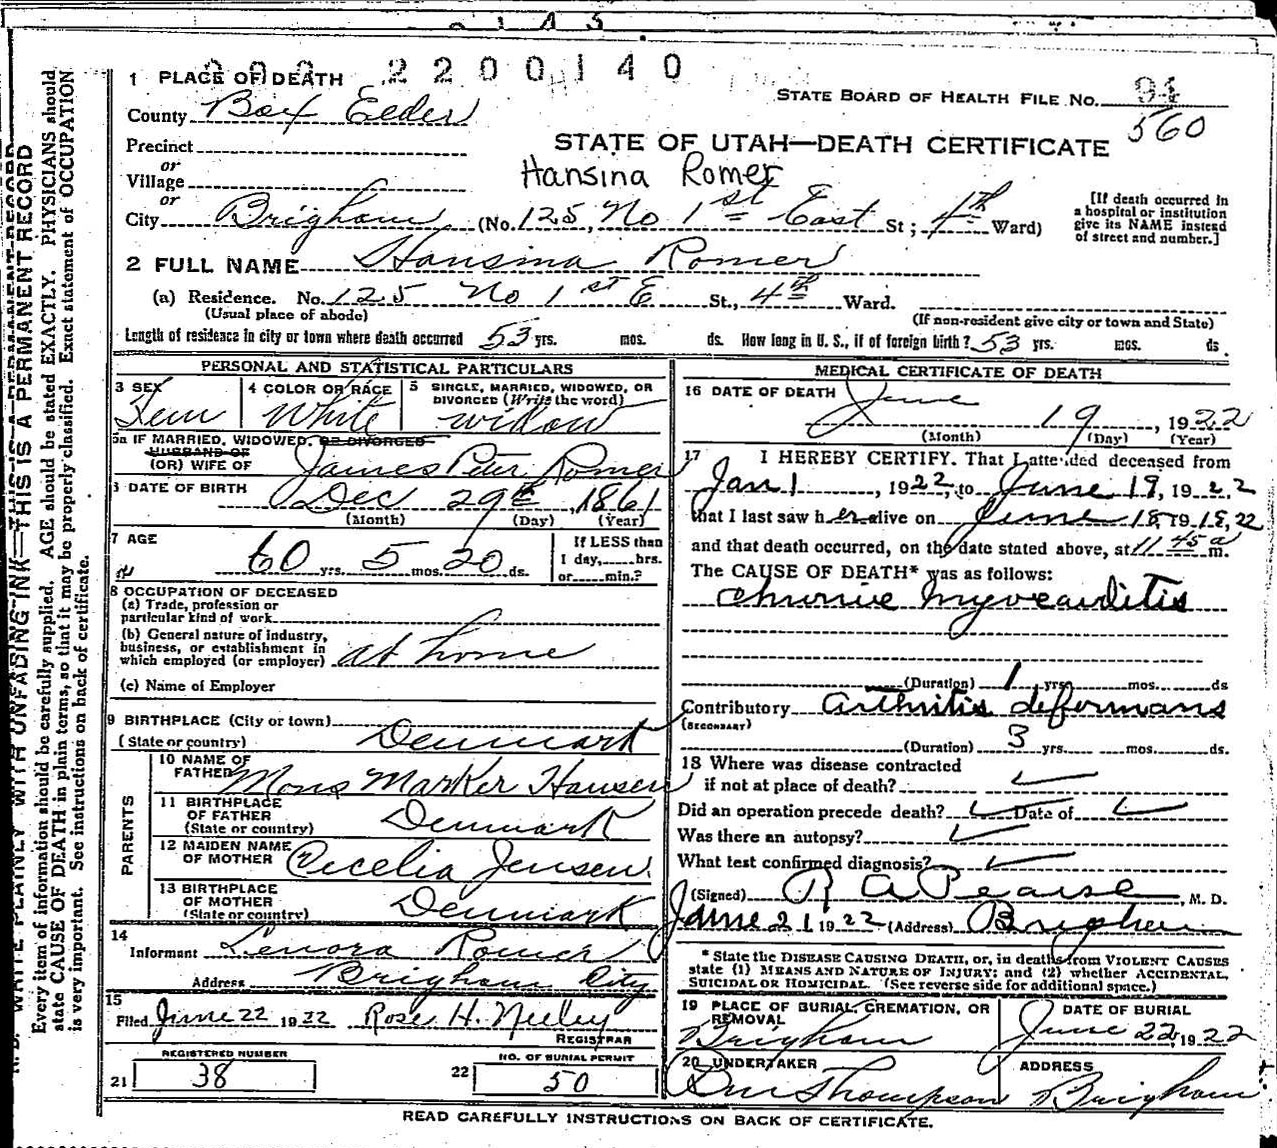 2200140
1 PLACE OF DEATH
STATE BOARD OF HEALTH FILE NO. 94
560
County Box Elder
STATE OF UTAH—DEATH CERTIFICATE
Precinct
or
Village
Hansina Romer
or
City Brigham (No. 125, No 1st East St; 4th Ward)
[If death occurred in a hospital or institution give its NAME instead of street and number.]
2 FULL NAME Hansina Romer
(a) Residence. No. 125 No 1st E St., 4th Ward.
(Usual place of abode) (If non-resident give city or town and State)
Length of residence in city or town where death occurred 53 yrs. mos. ds. How long in U. S., if of foreign birth? 53 yrs. mos. ds.
PERSONAL AND STATISTICAL PARTICULARS
3 SEX Fem
4 COLOR OR RACE White
5 SINGLE, MARRIED, WIDOWED, OR DIVORCED (Write the word) widow
5a IF MARRIED, WIDOWED, OR DIVORCED
HUSBAND OF
(OR) WIFE OF James Peter Romer
6 DATE OF BIRTH Dec 29th, 1861
(Month) (Day) (Year)
7 AGE 60 yrs. 5 mos. 20 ds.
If LESS than
1 day, hrs.
or min.?
8 OCCUPATION OF DECEASED
(a) Trade, profession or
particular kind of work
(b) General nature of industry,
business, or establishment in
which employed (or employer) at home
(c) Name of Employer
9 BIRTHPLACE (City or town)
(State or country) Denmark
PARENTS
10 NAME OF
FATHER Mons Marker Hansen
11 BIRTHPLACE
OF FATHER
(State or country) Denmark
12 MAIDEN NAME
OF MOTHER Cecelia Jensen
13 BIRTHPLACE
OF MOTHER
(State or country) Denmark
14
Informant Lenora Romer
Address Brigham City
15
Filed June 22 1922 Rose H. Neeley
REGISTRAR
REGISTERED NUMBER
21 38
NO. OF BURIAL PERMIT
22 50
MEDICAL CERTIFICATE OF DEATH
16 DATE OF DEATH June 19, 1922
(Month) (Day) (Year)
17 I HEREBY CERTIFY. That I attended deceased from
Jan 1, 1922, to June 19, 1922
that I last saw her alive on June 18, 19 18, 22
and that death occurred, on the date stated above, at 11 45 a m.
The CAUSE OF DEATH* was as follows:
Chronic Myocarditis
(Duration) 1 yrs. mos. ds
Contributory Arthritis deformans
(SECONDARY)
(Duration) 3 yrs. mos. ds.
18 Where was disease contracted
if not at place of death? ✓
Did an operation precede death? ✓ Date of ✓
Was there an autopsy? ✓
What test confirmed diagnosis? ✓
(Signed) R A Pearse, M. D.
June 21 1922 (Address) Brigham
* State the DISEASE CAUSING DEATH, or, in deaths from VIOLENT CAUSES
state (1) MEANS AND NATURE OF INJURY; and (2) whether ACCIDENTAL,
SUICIDAL OR HOMICIDAL. (See reverse side for additional space.)
19 PLACE OF BURIAL, CREMATION, OR
REMOVAL
Brigham
DATE OF BURIAL
June 22, 1922
20 UNDERTAKER
Thompson
ADDRESS
Brigham
READ CAREFULLY INSTRUCTIONS ON BACK OF CERTIFICATE.
WRITE PLAINLY WITH UNFADING INK—THIS IS A PERMANENT RECORD
Every item of information should be carefully supplied. AGE should be stated EXACTLY. PHYSICIANS should
state CAUSE OF DEATH in plain terms, so that it may be properly classified. Exact statement of OCCUPATION
is very important. See instructions on back of certificate.